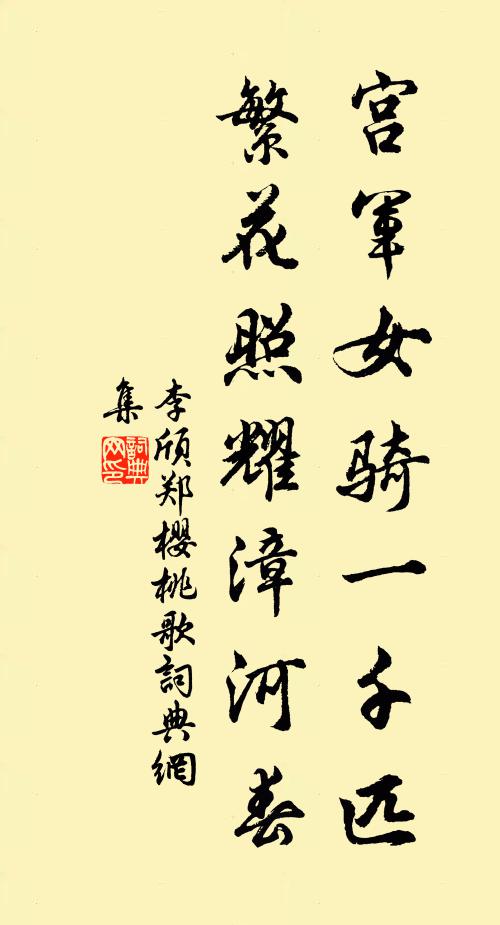 宫軍女骑一千匹
繁花照耀漳河春
李颀郑櫻桃歌詞典網
集
詞典
网印